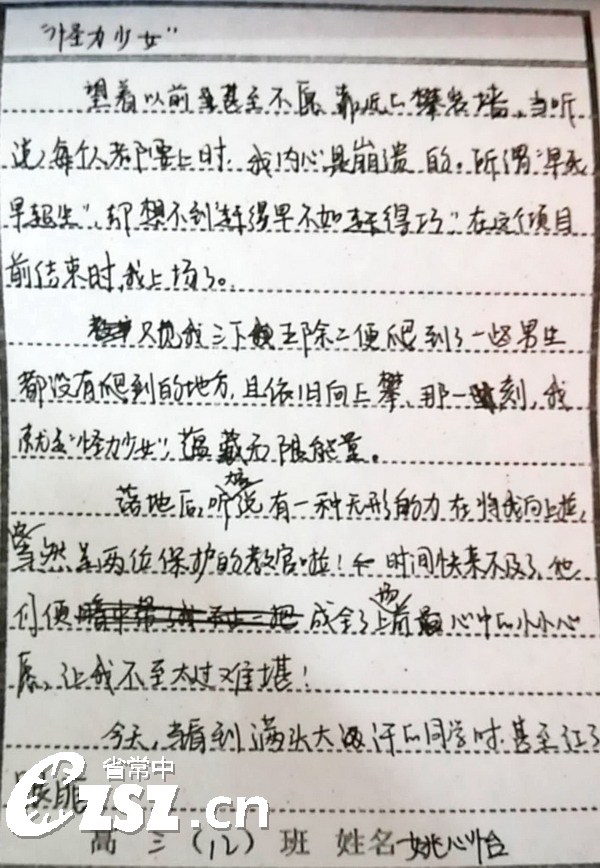 “怪力少女”
望着以前甚至不愿靠近的攀岩墙,当听
说每个人都要上时,我内心是崩溃的。所谓“早死
早超生”,却想不到“赶得早不如赶得巧”,在这个项目
前结束时,我上场了。
只见我三下五除二便爬到了一些男生
都没有爬到的地方,且依旧向上攀,那一刻,我
就是“怪力少女”,蕴藏无限能量。
落地后,有一种无形的力在将我向上拉,
当然是两位保护的教官啦!时间快来不及了,他
们便成全了我心中的小小心
愿,让我不至太过难堪!
今天,当看到满头大汗的同学时,甚至红了
眼眶
省常中
czsz.cn
高三(12)班 姓名 姚心怡